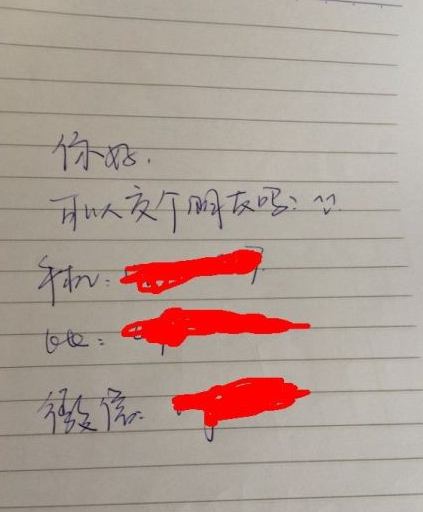 你好.
可以交个朋友吗: ¨
手机:
QQ:
微信: